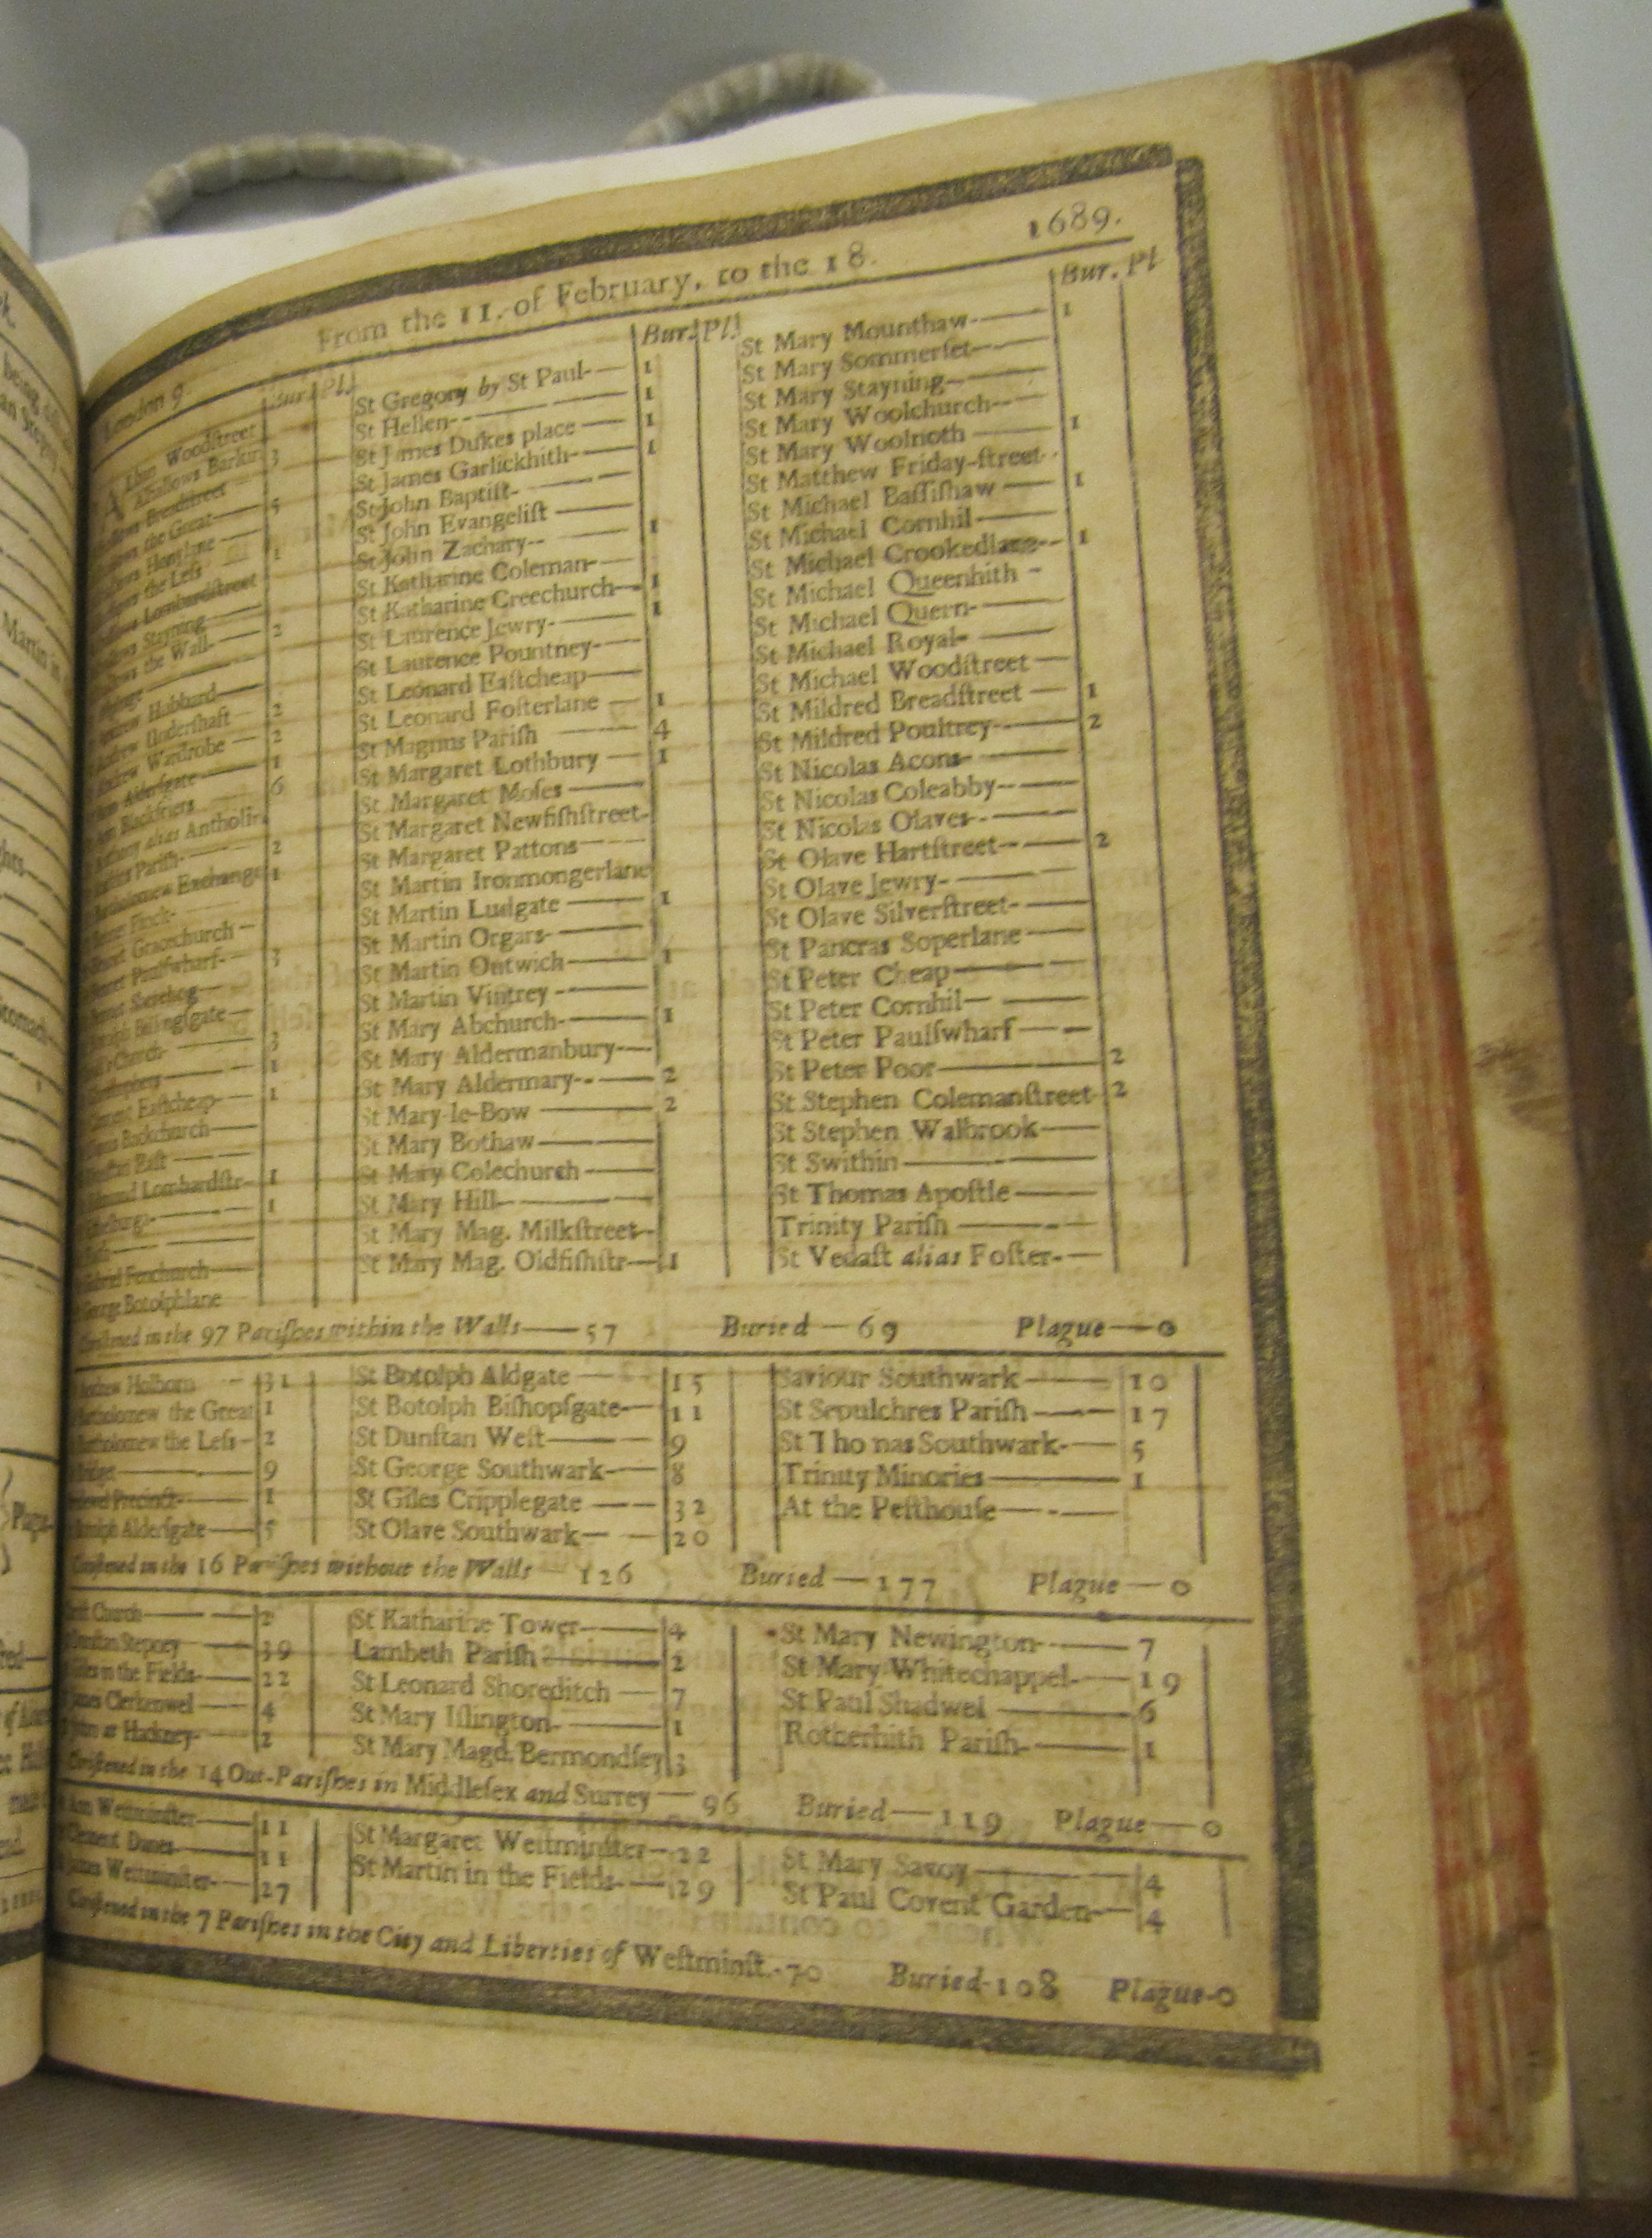 From the 11. of February, to the 18. 1689.
London 9. Bur. Pl.
Alban Woodstreet
Alhallows Barkin 3
Breadstreet
the Great 5
Honylane
the Less 1
Lombardstreet
Stayning
the Wall 2
Hubbard
Undershaft 2
Wardrobe 2
Aldersgate 1
Blackfriers 6
alias Antholin
Parish 2
Exchange 1
Finck
Gracechurch
Paulswharf 3
Billingsgate
Church 3
1
Eastcheap 1
Backchurch
East
Lombardstr 1
1
Fenchurch
George Botolphlane
Bur. Pl.
St Gregory by St Paul 1
St Hellen 1
St James Dukes place 1
St James Garlickhith 1
St John Baptist
St John Evangelist
St John Zachary 1
St Katharine Coleman
St Katharine Creechurch 1
St Laurence Jewry 1
St Laurence Pountney
St Leonard Eastcheap
St Leonard Fosterlane 1
St Magnus Parish 4
St Margaret Lothbury 1
St Margaret Moses
St Margaret Newfishstreet
St Margaret Pattons
St Martin Ironmongerlane
St Martin Ludgate 1
St Martin Orgars
St Martin Outwich 1
St Martin Vintrey
St Mary Abchurch 1
St Mary Aldermanbury
St Mary Aldermary 2
St Mary le-Bow 2
St Mary Bothaw
St Mary Colechurch
St Mary Hill
St Mary Mag. Milkstreet
St Mary Mag. Oldfishstr 1
Bur. Pl
St Mary Mounthaw 1
St Mary Sommerset
St Mary Stayning
St Mary Woolchurch
St Mary Woolnoth 1
St Matthew Friday-street
St Michael Bassishaw 1
St Michael Cornhil
St Michael Crookedlane 1
St Michael Queenhith
St Michael Quern
St Michael Royal
St Michael Woodstreet
St Mildred Breadstreet 1
St Mildred Poultrey 2
St Nicolas Acons
St Nicolas Coleabby
St Nicolas Olaves
St Olave Hartstreet 2
St Olave Jewry
St Olave Silverstreet
St Pancras Soperlane
St Peter Cheap
St Peter Cornhil
St Peter Paulswharf
St Peter Poor 2
St Stephen Colemanstreet 2
St Stephen Walbrook
St Swithin
St Thomas Apostle
Trinity Parish
St Vedast alias Foster
Christened in the 97 Parishes within the Walls 57 Buried 69 Plague 0
Andrew Holborn 31
Bartholomew the Great 1
Bartholomew the Less 2
Bridget 9
Precinct 1
Botolph Aldersgate 5
St Botolph Aldgate 15
St Botolph Bishopsgate 11
St Dunstan West 9
St George Southwark 8
St Giles Cripplegate 32
St Olave Southwark 20
Saviour Southwark 10
St Sepulchres Parish 17
St Tho nas Southwark 5
Trinity Minories 1
At the Pesthouse
Christened in the 16 Parishes without the Walls 126 Buried 177 Plague 0
Christ Church 2
Dunstan Stepney 39
Giles in the Fields 22
James Clerkenwel 4
at Hackney 2
St Katharine Tower 4
Lambeth Parish 2
St Leonard Shoreditch 7
St Mary Islington 1
St Mary Magd. Bermondsey 3
St Mary Newington 7
St Mary Whitechappel 19
St Paul Shadwel 6
Rotherhith Parish 1
Christened in the 14 Out-Parishes in Middlesex and Surrey 96 Buried 119 Plague 0
Ann Westminster 11
Clement Danes 11
James Westminster 27
St Margaret Westminster 22
St Martin in the Fields 29
St Mary Savoy 4
St Paul Covent Garden 4
Christened in the 7 Parishes in the City and Liberties of Westminst. 70 Buried 108 Plague 0